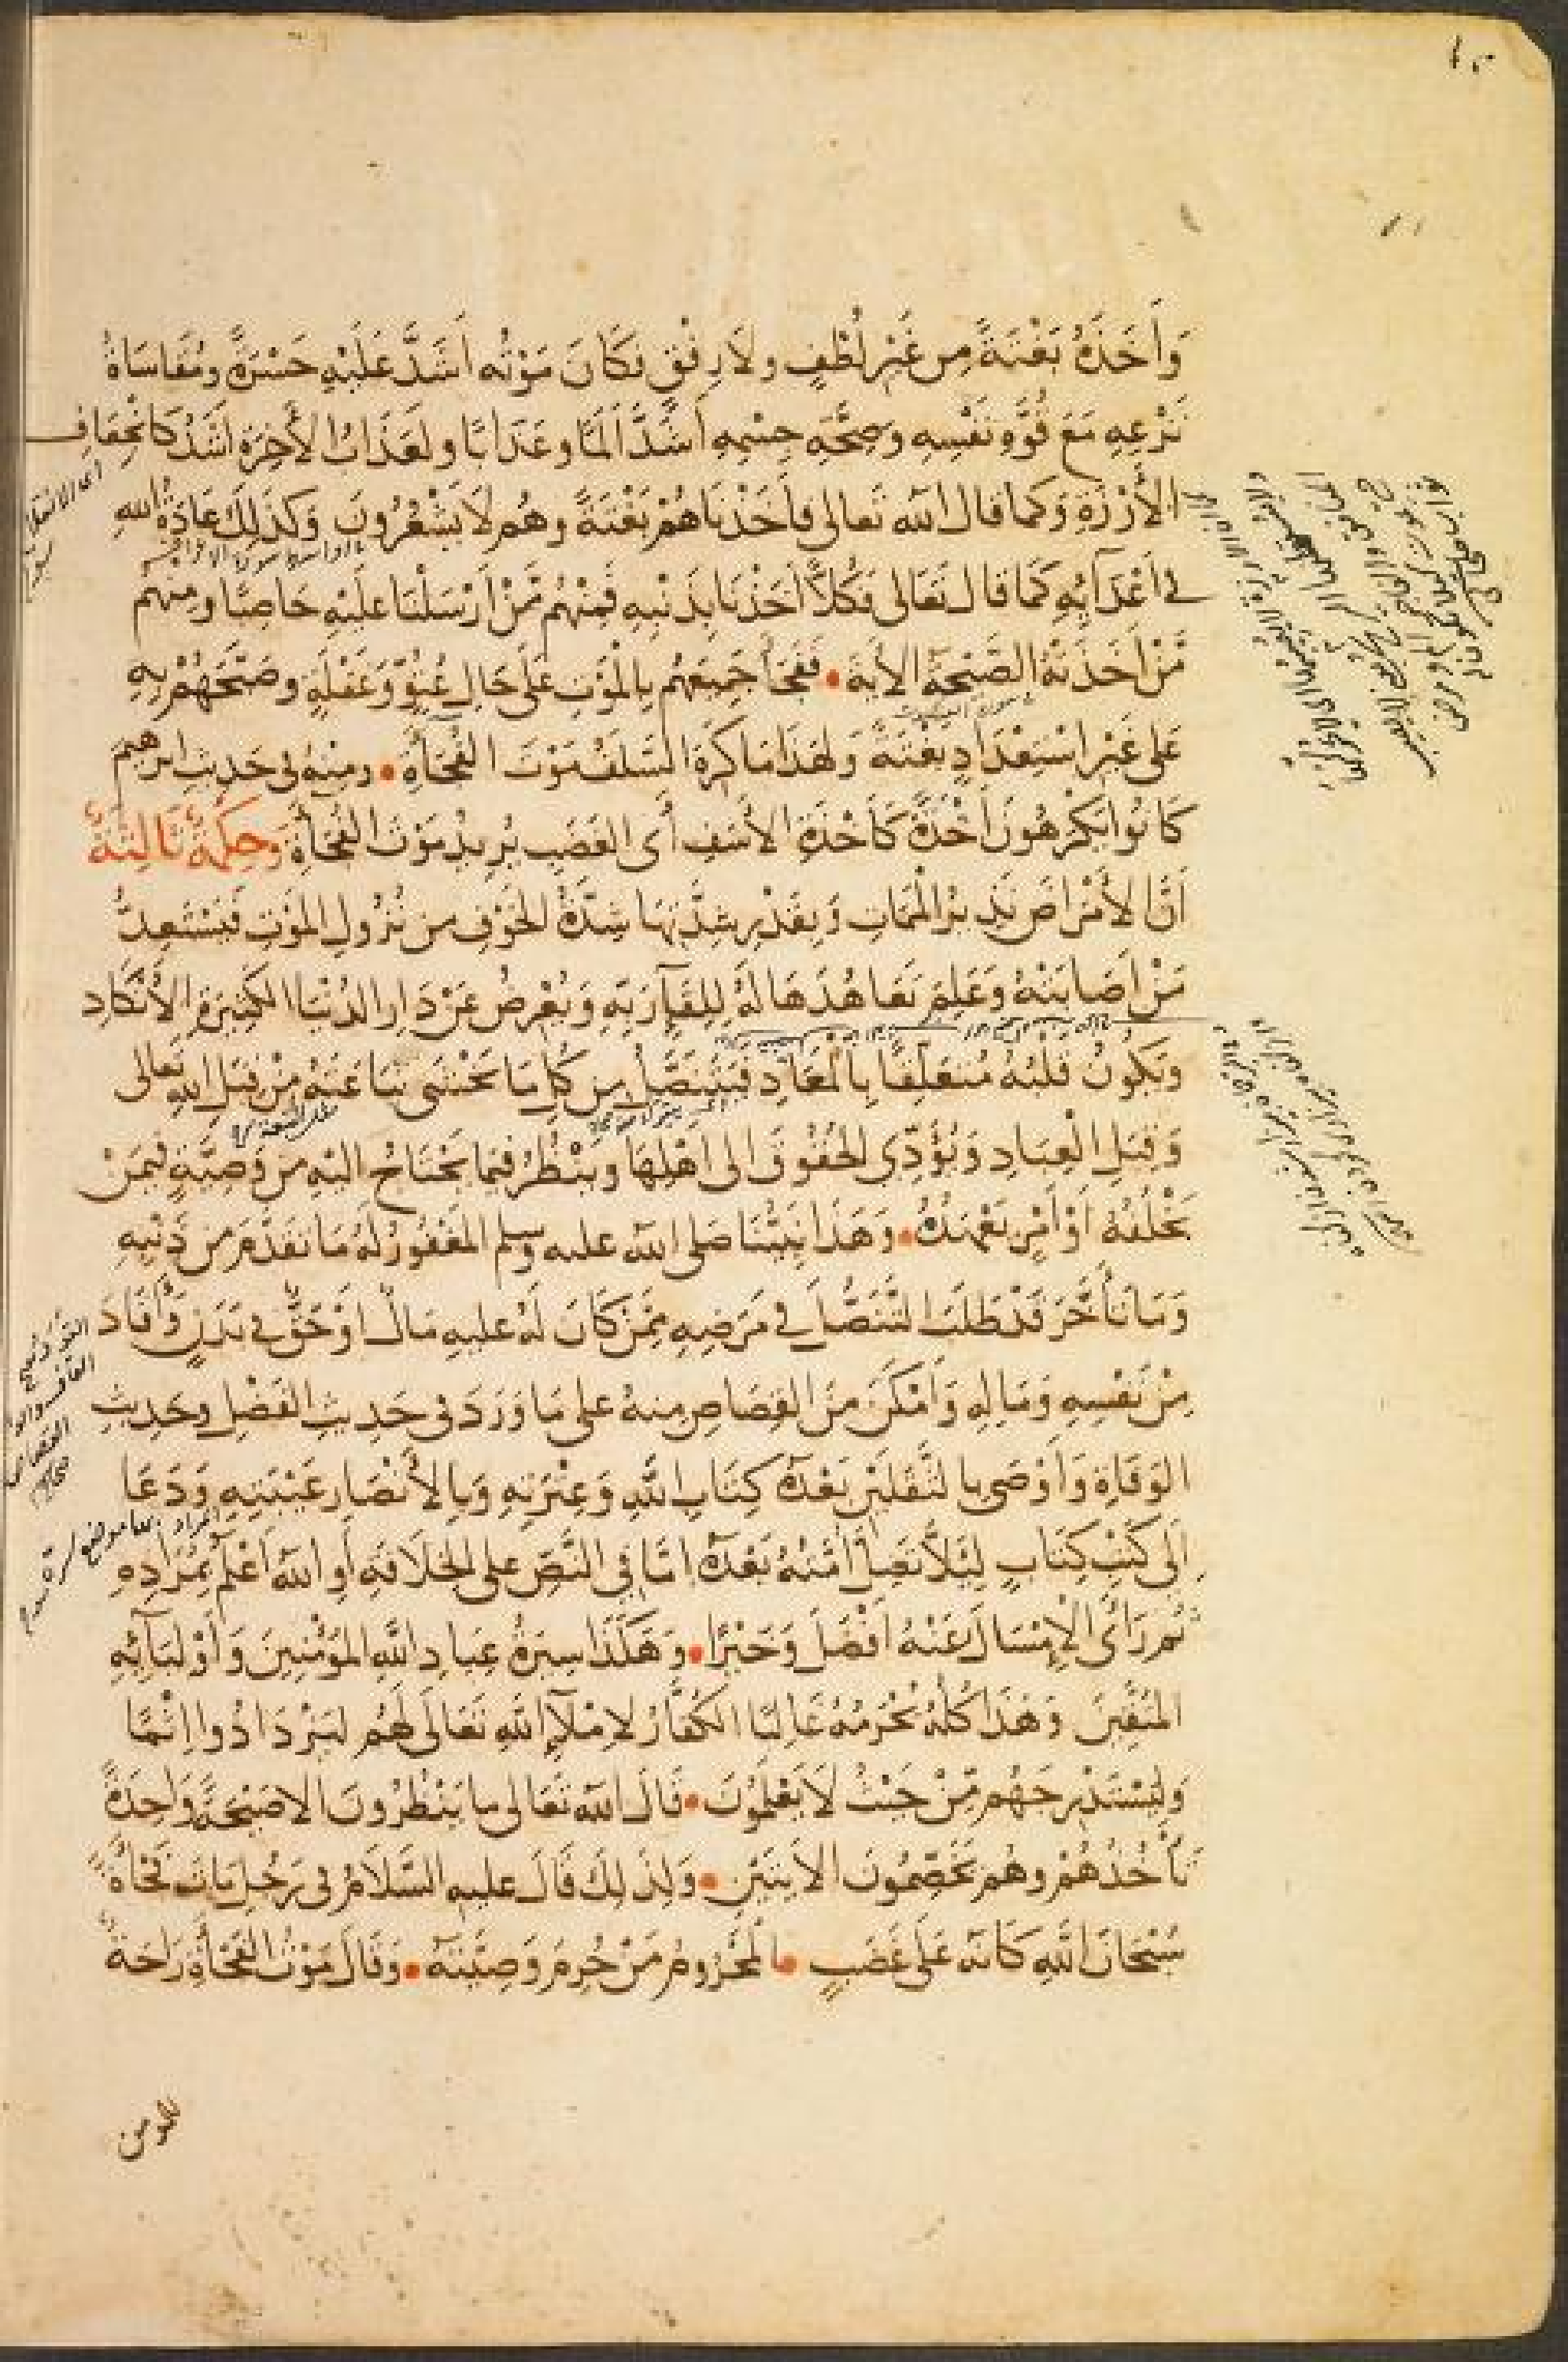 وَأَخَذَهُ بَغْتَةً مِن غَيْرِ لُطْفٍ ولَا رِفْقٍ فكَانَ مَوْتُه أَشَدَّ عَلَيْهِ حَسْرَةً ومُقَاسَاةُ
نَزْعِهِ مَعَ قُوَّةِ نَفْسِهِ وَصِحَّةِ جِسْمِهِ أَشَدَّ أَلَمًا وعَذَابًا ولعَذَابُ الْأَخِرَةِ أَشَدُّ كَانْجِعَافِ
الْأَرْزَةِ وَكَما قال الله تَعالى فَأَخَذْنَاهُمْ بَغْتَةً وهُم لَا يَشْعُرُونَ وَكَذَلِكَ عَادَةُ اللهِ
في أَعْدَآئِهِ كَمَا قال تَعَالى فَكُلًّا أَخَذْنَا بِذَنْبِهِ فَمِنْهُم مَّنْ أَرْسَلْنَا عَلَيْهِ حَاصِبًا ومِنْهُم
مَّنْ أَخَذَتْهُ الصَّيْحَةُ الأيَةَ • فَفَجَأَ جَمِيعَهُم بِالْمَوْتِ عَلَى حَالِ عُتُوٍّ وَغَفْلَةٍ وصَبَّحَهُمْ بِهِ
عَلى غَيْرِ اسْتِعْدَادٍ بَغْتَةً وَلهَذَا مَا كَرِهَ السَّلَفُ مَوْتَ الفُجَاءَةِ • ومِنْهُ في حَدِيثِ ابْرهِيمَ
كَانُوا يَكْرَهُونَ أَخْذَةً كَأَخْذَةِ الأَسَفِ أَىِ الغَضَبِ يُرِيدُ مَوْتَ الفُجَاءَةِ وحِكْمَةٌ ثَالِثَةٌ
أَنَّ الأَمْرَاضَ نَذِيرُ الْمَمَاتِ وَبِقَدْرِ شِدَّتِهَا شِدَّةُ الخَوْفِ من نُزُولِ المَوْتِ فَيَسْتَعِدُّ
مَنْ أَصَابَتْهُ وَعَلِمَ تَعَاهُدَهَا لَهُ لِلِقَآءِ رَبِّهِ وَيُعْرِضُ عَنْ دَارِ الدُّنْيَا الكَثِيرَةِ الأَنْكَادِ
وَيَكُونُ قَلْبُهُ مُتَعَلِّقًا بِالْمَعَادِ فَيَتَنَصَّلُ مِن كُلِّ مَا يَخْشَى تِبَاعَتَهُ مِنْ قِبَلِ اللهِ تَعَالى
وَقِبَلِ الْعِبَادِ وَيُؤَدِّي الحُقُوقَ الى أَهْلِهَا ويَنْظُرُ فيما يَحْتَاجُ اليْهِ مِن وَصِيَّةٍ فِيمَنْ
يَخْلُفُهُ أَوْ أَمْرٍ يَعْهَدُهُ • وَهَذَا نَبِيُّنَا صَلى الله عليه وسلم المَغْفُورُ لَهُ مَا تَقَدَّمَ مِن ذَنْبِهِ
وَمَا تَأَخَّرَ قَدْ طَلَبَ التَّنَصُّلَ في مَرَضِهِ مِمَّنْ كَانَ لَهُ عليهِ مَالٌ أوْ حَقٌّ في بَدَنٍ وَأَقَادَ
مِنْ نَفْسِهِ وَمَالِهِ وَأَمْكَنَ مِنَ القِصَاصِ مِنهُ على مَا وَرَدَ فى حَدِيثِ الفَضْلِ وحَدِيثِ
الوَفَاةِ وَأَوْصَى بِالثَّقَلَيْنِ بَعْدَهُ كِتَابِ اللَّهِ وَعِتْرَتِهِ وَبِالأَنْصَارِ عَيْبَتِهِ وَدَعَا
إِلَى كَتْبِ كِتَابٍ لِئَلَّا تَضِلَّ أُمَّتُهُ بَعْدَهُ إِمَّا فِي النَّصِّ على الخِلَافَةِ أَوِ اللهُ أَعْلَمُ بِمُرَادِهِ
ثُم رَأَى الْإِمْسَاكَ عَنْهُ أَفْضَلَ وَخَيْرًا • وهَكَذَا سِيرَةُ عِبَادِ اللَّهِ المُؤْمِنِينَ وَأَوْلِيَآئِهِ
المُتَّقِينَ وَهَذَا كُلُّهُ يُحْرَمُهُ غَالِبًا الكُفَّارُ لِإِمْلَآءِ اللَّهِ تَعَالَى لَهُم لِيَزْدَادُوا إِثْمًا
وَلِيَسْتَدْرِجَهُم مِّنْ حَيْثُ لَا يَعْلَمُونَ • قَالَ اللَّه تَعَالى مَا يَنْظُرُونَ إلا صَيْحَةً وَاحِدَةً
تَأْخُذُهُمْ وهُم يَخَصِّمُونَ الأيَتَيْنِ • وَلِذَلِكَ قَالَ عليهِ السَّلَامُ في رَجُلٍ مَاتَ فُجَاءَةً
سُبْحَانَ اللَّهِ كَأَنَّه عَلَى غَضَبٍ • المَحْرُومُ مَنْ حُرِمَ وَصِيَّتَهُ • وَقَالَ مَوْتُ الفَجْأَةِ رَاحَةٌ
للمؤمن